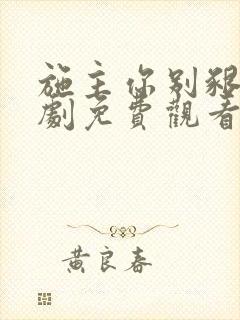 施主你别狠
劇免費觀看
黄良春